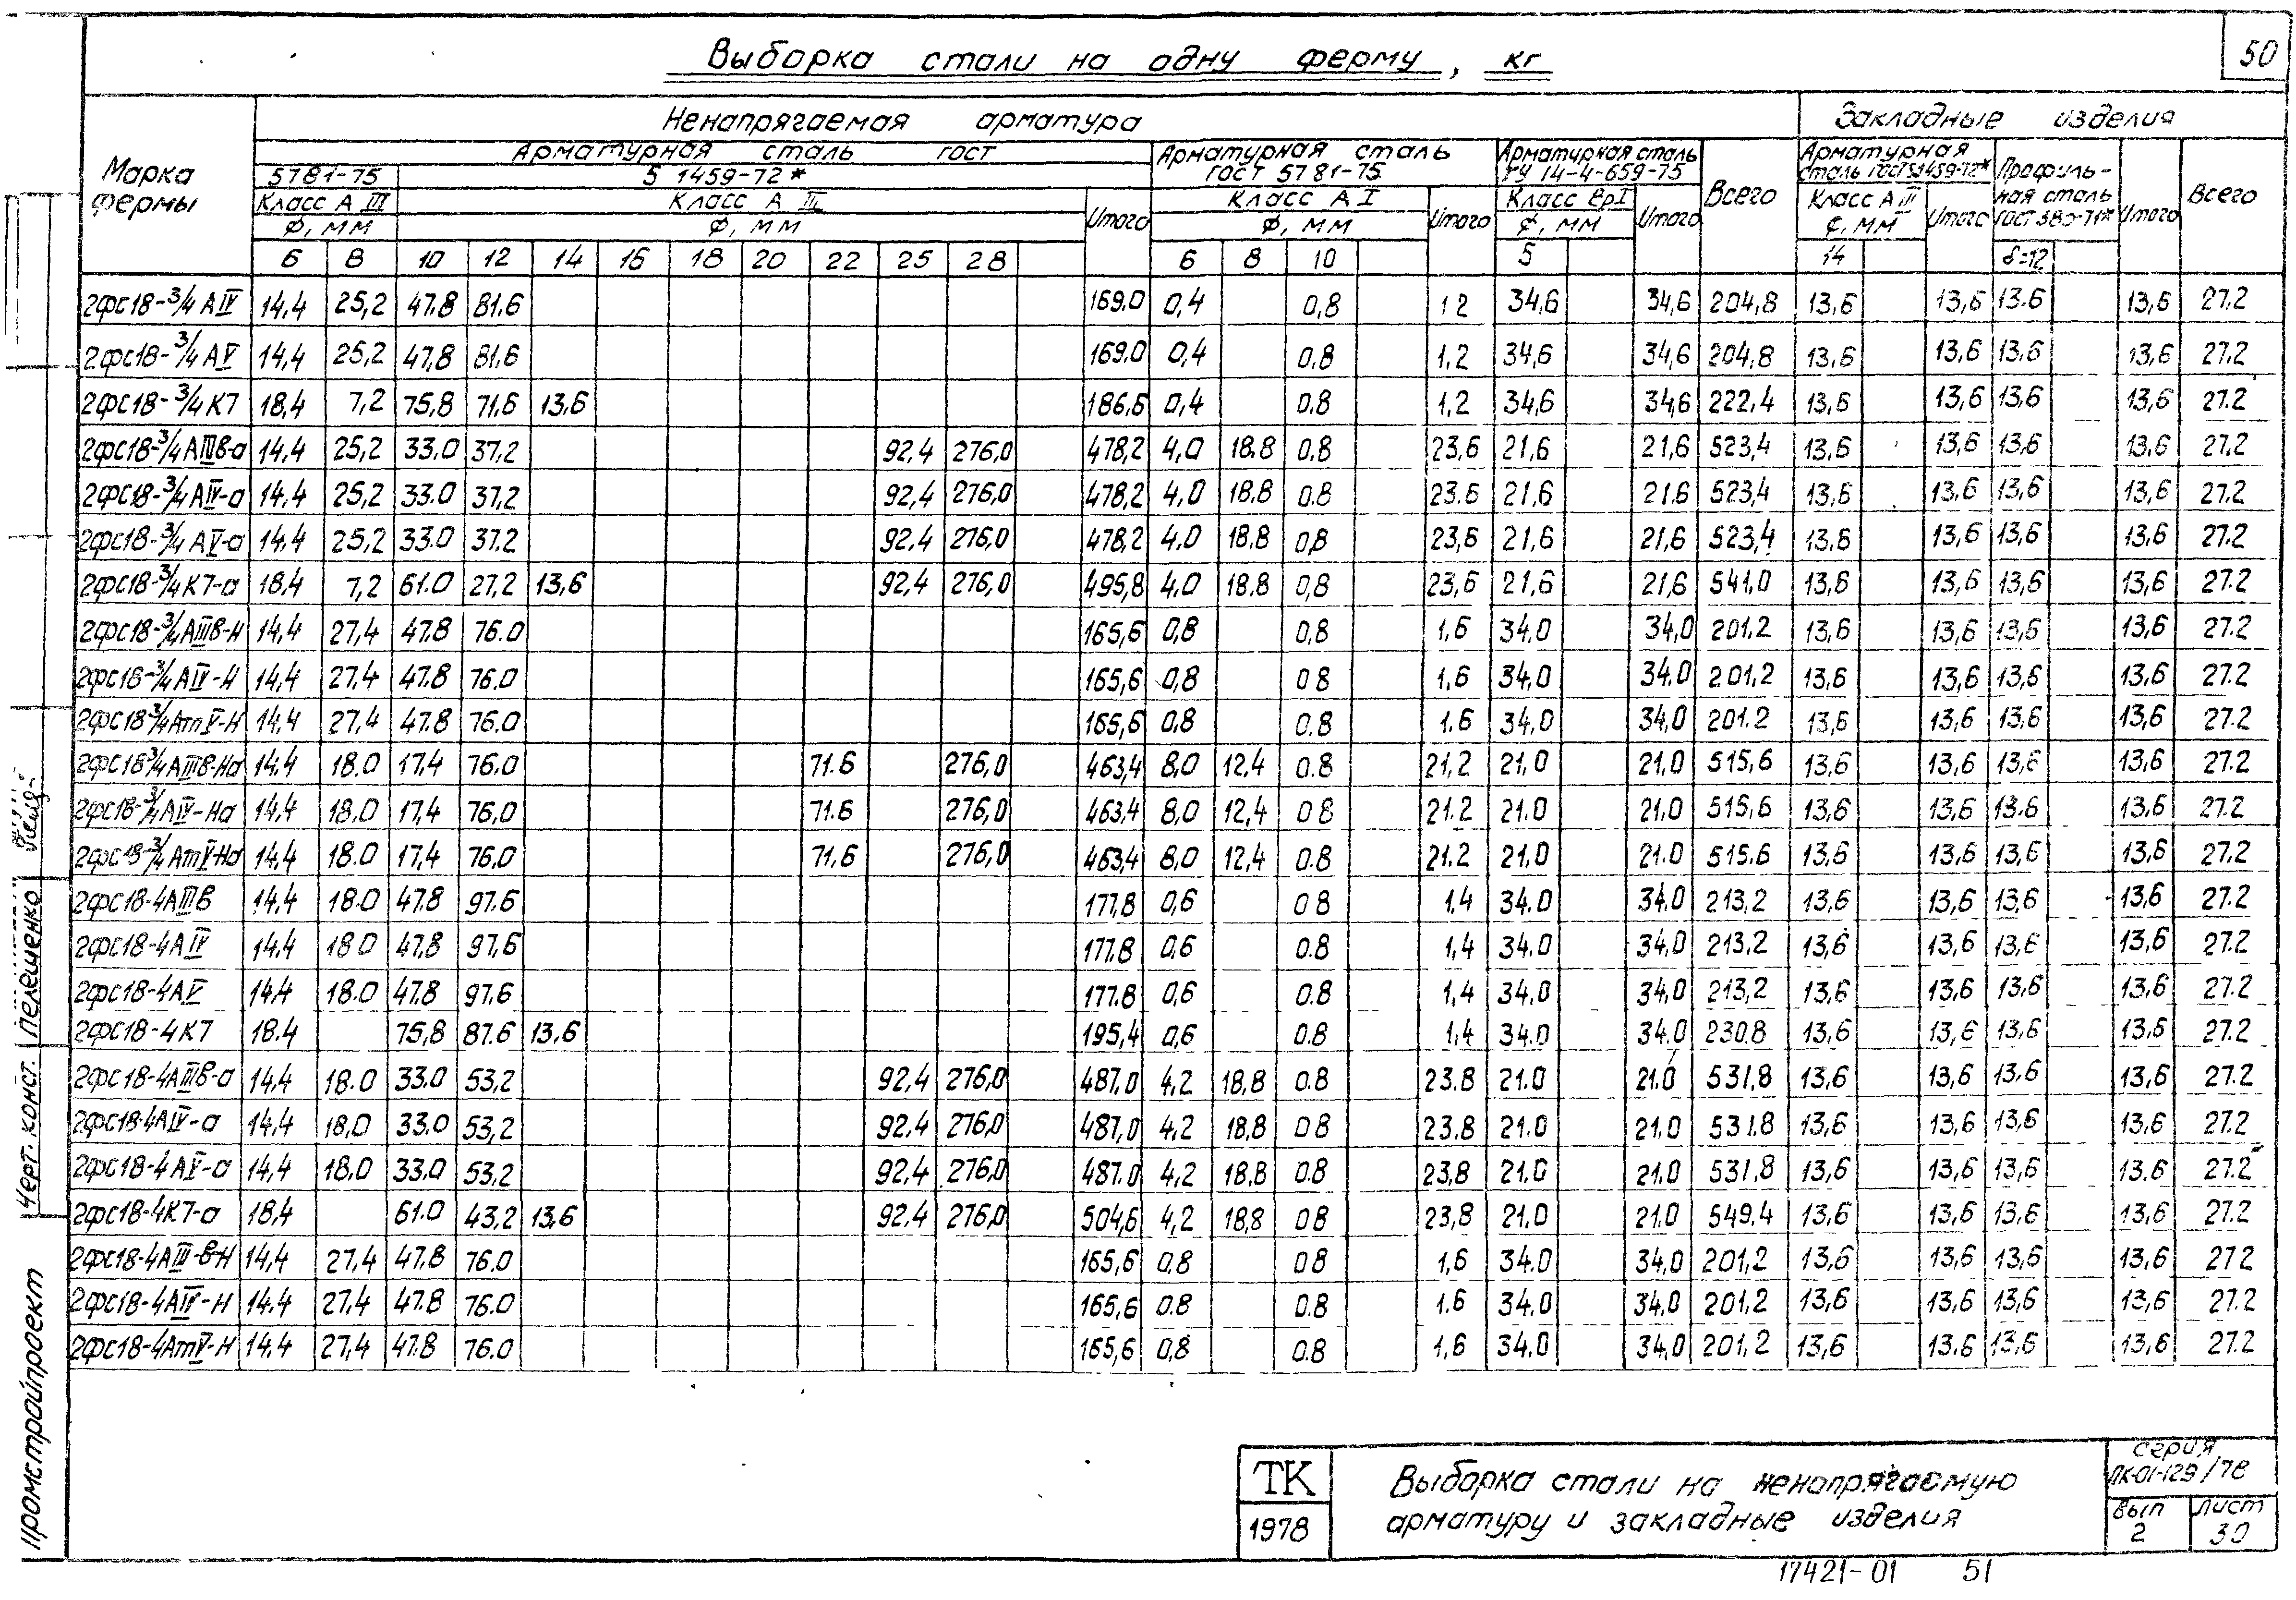 50
Выборка стали на одну ферму, кг
Марка фермы
Ненапрягаемая арматура
Закладные изделия
Арматурная сталь гост
5781-75
5 1459-72*
Класс А III
Класс А III
Ø, мм
Ø, мм
Итого
Арматурная сталь гост 5781-75
Класс А I
Ø, мм
Итого
Арматурная сталь ТУ 14-4-659-75
Класс Вр I
Ø, мм
Итого
Всего
Арматурная сталь гост 5 1459-72*
Класс А III
Ø, мм
Итого
Профильная сталь гост 380-71*
Итого
Всего
6 8 10 12 14 16 18 20 22 25 28 6 8 10 5 14 δ=12
2фс18-3/4 АIV 14,4 25,2 47.8 81.6 169.0 0,4 0,8 1 2 34,6 34,6 204,8 13,6 13,6 13.6 13,6 27.2
2фс18-3/4 АV 14,4 25,2 47,8 81.6 169.0 0,4 0.8 1,2 34,6 34,6 204,8 13,6 13,6 13,6 13,6 27.2
2фс18-3/4 К7 18,4 7,2 75,8 71,6 13,6 186,6 0,4 0.8 1,2 34,6 34,6 222,4 13,6 13,6 13,6 13,6 27.2
2фс18-3/4 АIIIв-а 14,4 25,2 33.0 37,2 92,4 276,0 478,2 4,0 18.8 0.8 23,6 21,6 21,6 523,4 13,6 13,6 13,6 13,6 27.2
2фс18-3/4 АIV-а 14,4 25,2 33.0 37,2 92,4 276,0 478,2 4,0 18.8 0.8 23.6 21,6 21.6 523,4 13,6 13,6 13,6 13,6 27.2
2фс18-3/4 АV-а 14,4 25,2 33.0 37.2 92,4 276,0 478,2 4,0 18,8 0,8 23,6 21,6 21,6 523,4 13,6 13,6 13,6 13,6 27.2
2фс18-3/4 К7-а 18,4 7,2 61.0 27,2 13,6 92,4 276,0 495,8 4,0 18.8 0,8 23,6 21,6 21,6 541,0 13,6 13,6 13,6 13,6 27.2
2фс18-3/4 АIIIв-Н 14,4 27,4 47.8 76.0 165,6 0,8 0,8 1,6 34.0 34,0 201.2 13,6 13,6 13,6 13,6 27.2
2фс18-3/4 АIV-Н 14,4 27,4 47.8 76.0 165,6 0,8 0 8 1,6 34,0 34.0 201,2 13,6 13,6 13,6 13,6 27.2
2фс18 3/4 АтV-Н 14,4 27,4 47.8 76.0 165,6 0.8 0.8 1.6 34.0 34,0 201.2 13,6 13,6 13,6 13,6 27.2
2фс18 3/4 АIIIв-На 14.4 18.0 17,4 76.0 71.6 276,0 463,4 8,0 12,4 0.8 21,2 21,0 21.0 515,6 13,6 13,6 13,6 13,6 27.2
2фс18-3/4 АIV-На 14,4 18.0 17,4 76.0 71.6 276,0 463,4 8,0 12,4 0 8 21.2 21.0 21,0 515,6 13,6 13,6 13.6 13,6 27.2
2фс18-3/4 АтV-На 14,4 18.0 17,4 76.0 71,6 276,0 463,4 8,0 12,4 0.8 21.2 21,0 21.0 515.6 13,6 13,6 13,6 13,6 27.2
2фс18-4АIIIв 14.4 18.0 47.8 97.6 177,8 0,6 0 8 1.4 34.0 34.0 213,2 13,6 13,6 13,6 13,6 27.2
2фс18-4АIV 14.4 18 0 47.8 97,6 177.8 0,6 0.8 1,4 34.0 34,0 213,2 13,6 13,6 13,6 13,6 27.2
2фс18-4АV 14.4 18.0 47.8 97,6 177.8 0,6 0.8 1,4 34,0 34,0 213,2 13,6 13,6 13,6 13,6 27.2
2фс18-4К7 18.4 75,8 87.6 13,6 195,4 0,6 0.8 1,4 34.0 34.0 230.8 13,6 13,6 13,6 13,6 27.2
2фс18-4АIIIв-а 14,4 18.0 33.0 53,2 92,4 276,0 487,0 4,2 18,8 0.8 23.8 21.0 21.0 531,8 13,6 13,6 13,6 13,6 27.2
2фс18-4АIV-а 14,4 18,0 33.0 53,2 92,4 276,0 487,0 4,2 18,8 0 8 23.8 21.0 21,0 531.8 13,6 13,6 13,6 13,6 27.2
2фс18-4АV-а 14,4 18.0 33.0 53,2 92,4 276,0 487.0 4,2 18,8 0.8 23,8 21.0 21,0 531,8 13,6 13,6 13,6 13.6 27.2
2фс18-4К7-а 18,4 61.0 43,2 13,6 92.4 276,0 504,6 4,2 18,8 0 8 23,8 21.0 21,0 549.4 13,6 13,6 13,6 13,6 27.2
2фс18-4АIII-в-Н 14,4 27,4 47.8 76.0 165,6 0.8 0 8 1,6 34.0 34,0 201,2 13,6 13,6 13,6 13,6 27 2
2фс18-4АIV-Н 14.4 27,4 47.8 76.0 165,6 0.8 0.8 1.6 34.0 34,0 201,2 13,6 13,6 13,6 13,6 27.2
2фс18-4АтV-Н 14.4 27,4 47.8 76.0 165,6 0,8 0.8 1,6 34.0 34,0 201,2 13,6 13.6 13,6 13,6 27.2
Черт. конст. Пелещенко
Промстройпроект
ТК
1978
Выборка стали на ненапрягаемую
арматуру и закладные изделия
серия
ПК-01-129/78
Вып
2
Лист
30
17421-01 51